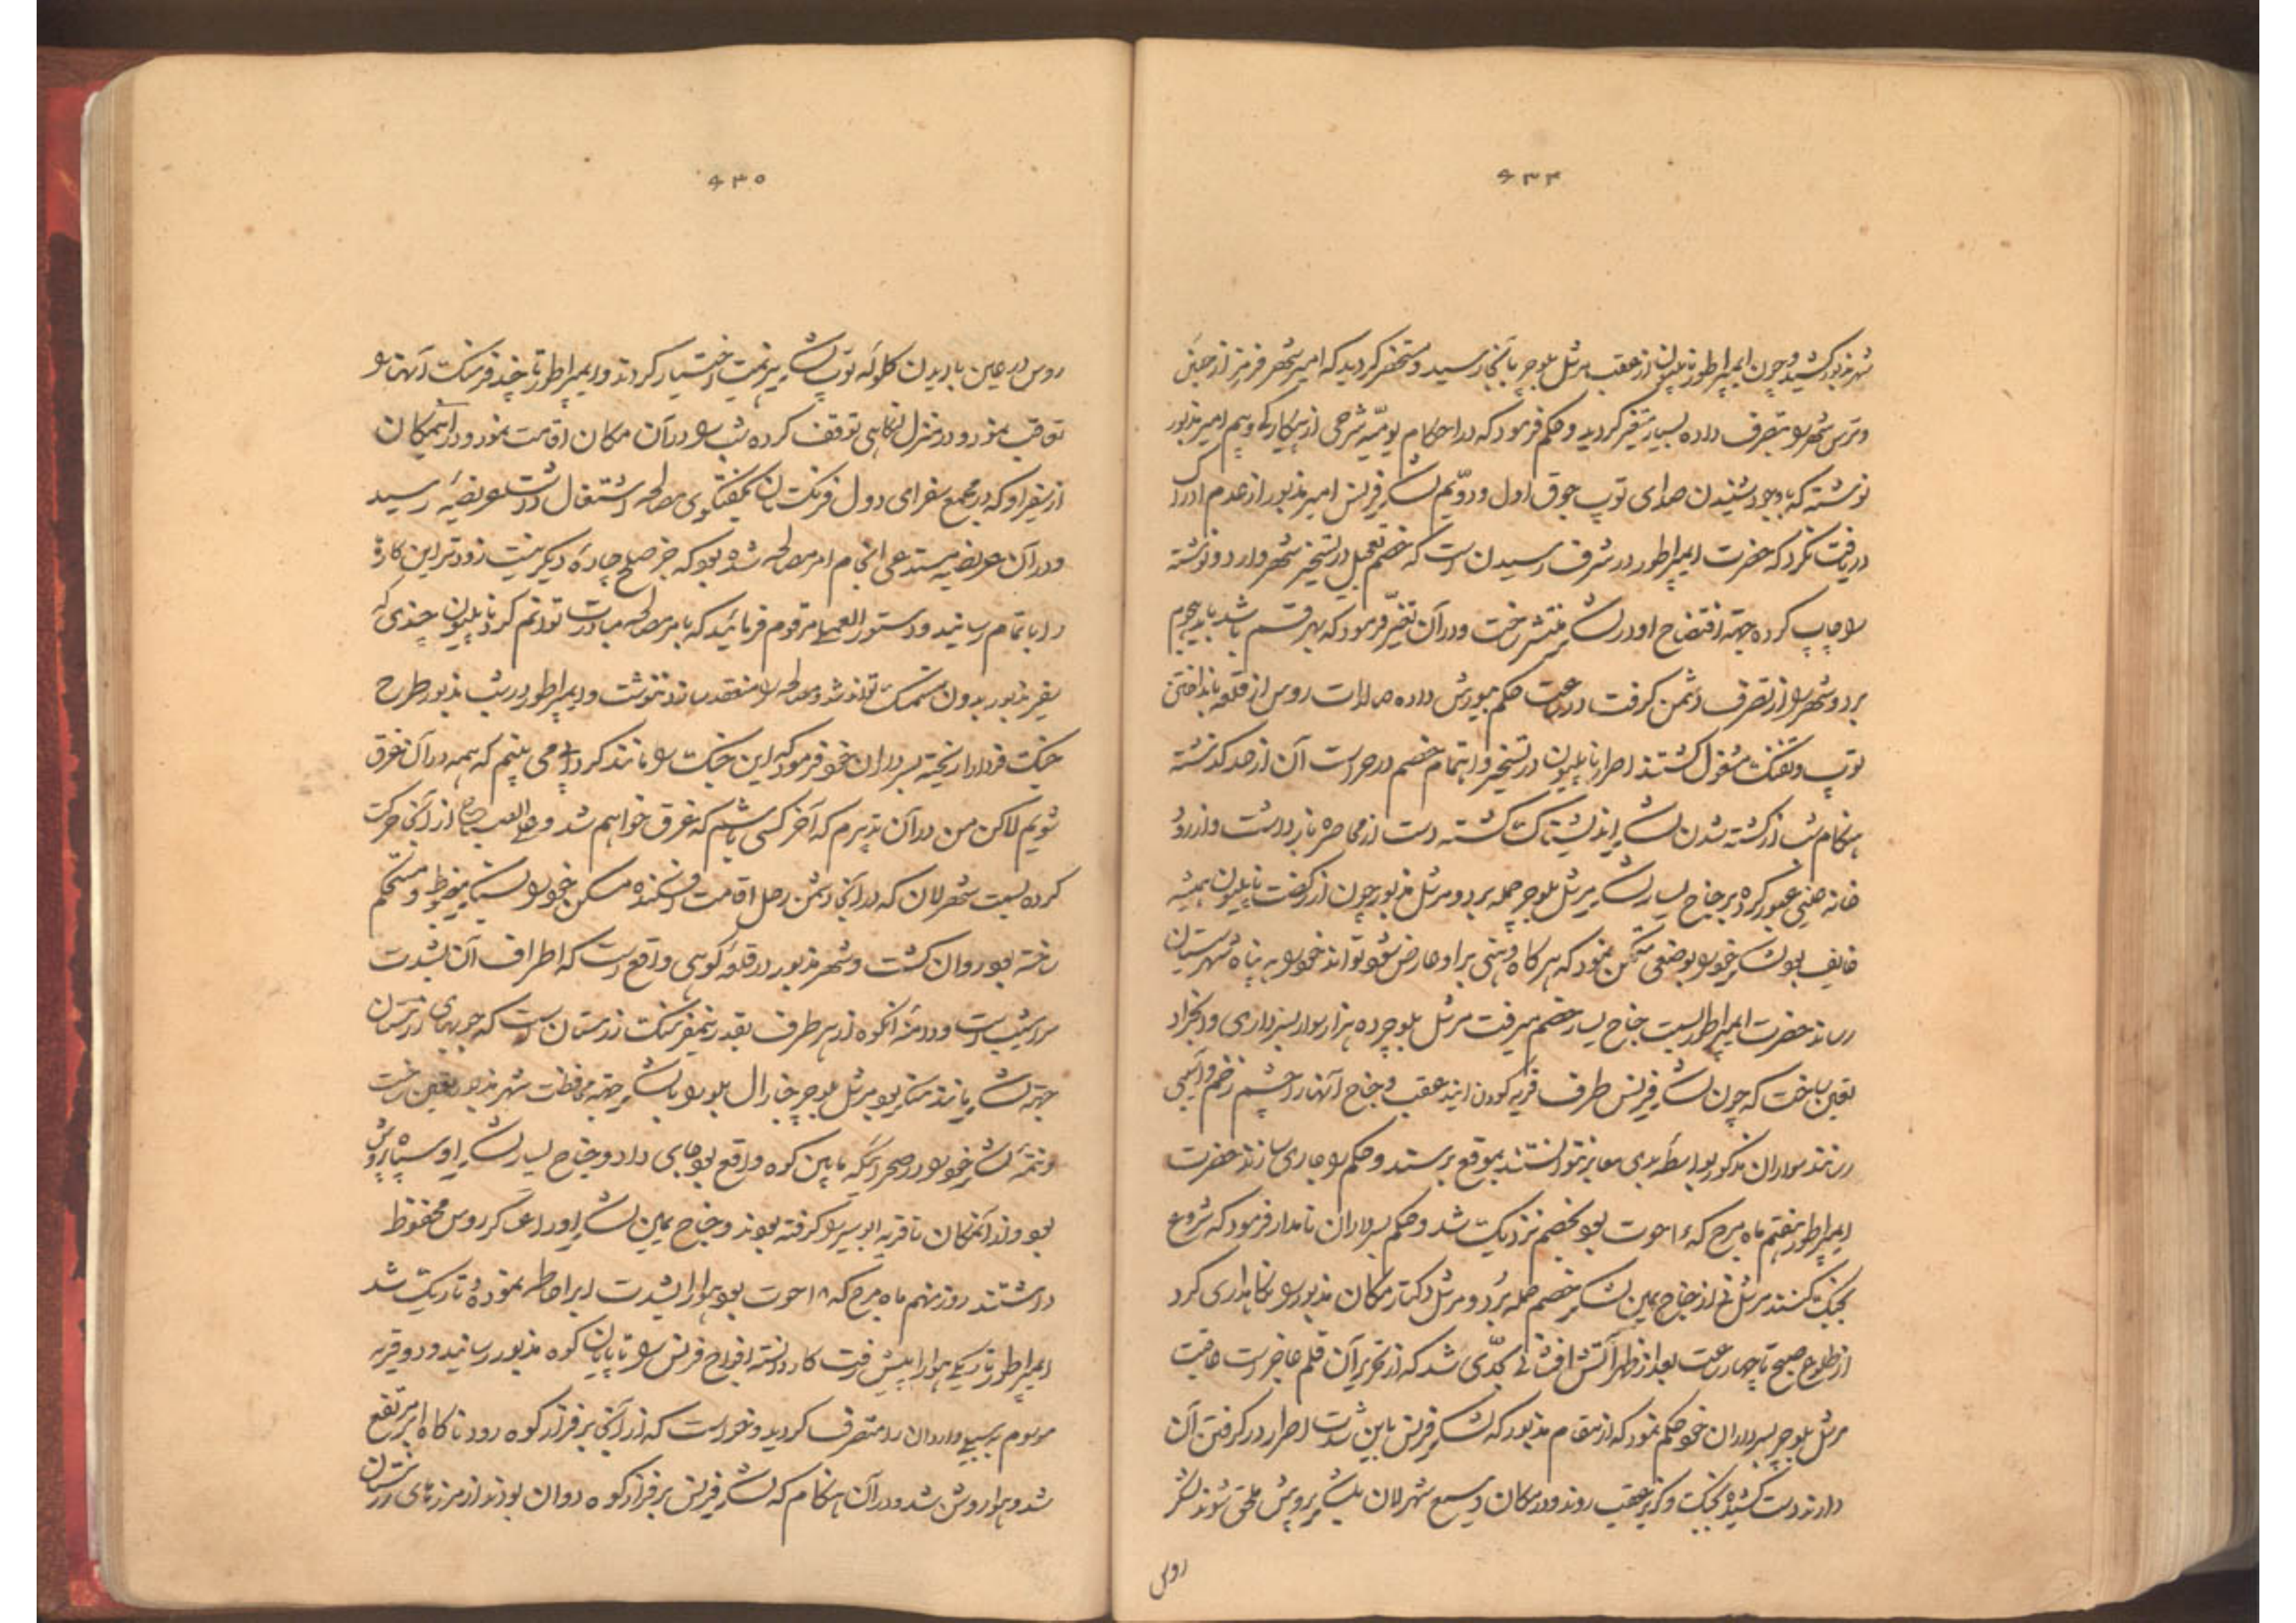 ۴۳۴
شهر مذبور کشید و چون ایمپراطور ناپلیون از عقب مرشل بلوچر بآنجا رسید و مستحضر گردید که امیر شهر فرمز از جبن
و ترس شهر را بتصرف داده بسیار متغیر گردید و حکم فرمود که در احکام یومیّه شرحی از بیکارگی و بیم امیر مذبور
نوشته که با وجود شنیدن صدای توپ جوق اول و دوّیم لشکر فرنس امیر مذبور از عدم ادراک
دریافت نکرد که حضرت ایمپراطور در شرف رسیدن است که خصم تعجیل در تسخیر شهر دارد و نوشته
را چاپ کرده جهته افتضاح او در لشکر منتشر ساخت و در آن تغیّر فرمود که بهر قسم باشد باید هجوم
برد و شهر را از تصرف دشمن گرفت در ساعت حکم بیورش داده صالدات روس از قلعه بانداختن
توپ و تفنک مشغول گشتند اصرار ناپلیون در تسخیر و اهتمام خصم در حراست آن از حد گذشته
هنگام شب از کشته شدن لشکر اندیشناک گشته دست از محاصره باز داشت و از رود
خانه عبور کرده بر جناح یسار لشکر مرشل بلوچر حمله برد و مرشل مذبور چون از ناپلیون همیشه
خایف بود لشکر خود را بوضعی متمکن نمود که هر گاه وهنی بر او عارض شود تواند خود را به پناه شهر
رساند حضرت ایمپراطور بسمت جناح یسار خصم میرفت مرشل بلوچر ده هزار سوار بسرداری
تعین ساخت که چون لشکر فرنس طرف قریه آیند عقب و جناح آنها را چشم زخم و آسیبی
رسانند سواران مذکور بواسطه بدی معابر نتوانستند بموقع برسند و حکم را جاری سازند حضرت
ایمپراطور هفتم ماه مرح که حوت بود بخصم نزدیک شد و حکم بسرداران نامدار فرمود که شروع
بجنک کنند مرشل نی از جناح یمین لشکر خصم حمله بُرد و مرشل مکان مذبور را نگاهداری کرد
از طلوع صبح تا چهار ساعت بعد از ظهر آتش افشانی بحدّی شد که از تحریر آن قلم عاجز است عاقبت
مرشل بلوچر بسرداران خود حکم نمود که از مقام مذبور که لشکر فرنس باین شدت اصرار در گرفتن آن
دارند دست کشیده بجنک و گریز بعقب روند و در مکان وسیع شهر لان بلشکر پروش ملحق شوند لشکر
روس
۴۳۵
روس در عین باریدن گلوله توپ لشکر هزیمت اختیار کردند و ایمپراطور تا چند فرسنک آنها را
تعاقب نمود و در منزل توقف کرده شب را در آن مکان اقامت نمود و در آنمکان
از سفیر او که در مجمع سفرای دول فرنکستان بگفتگوی مصالحه اشتغال داشت عریضهٔ رسید
و در آن عریضه مستدعی انجام امر مصالحه شده بود که جز صلح چارهٔ دیگر نیست زودتر این کار
را باتمام رسانید و دستورالعمل مرقوم فرمائید که بامر مصالحه مبادرت توانم کرد ناپلیون چندی که
سفیر مذبور بدون متمسک تواند شد و مصالحه را منعقد سازد ننوشت و ایمپراطور در شب مذبور طرح
جنک فردا را ریخته بسرداران خود فرمود که این جنک را مانند گردابی می بینم که همه در آن غرق
شویم لاکن من در آن تدبیرم که آخر کسی باشیم که غرق خواهم شد و علی الصباح از آنجا حرکت
کرده بسمت شهر لان که در آنجا دشمن رحل اقامت افکنده مسکن خود را بسیار مضبوط و مستحکم
ساخته بود روان گشت و شهر مذبور در قله کوهی واقع است که اطراف آن بشدت
سراشیب است و دامنهٔ آنکوه از هر طرف بقدر نیمفرسنک رزستان است که چوبهای رزستان
جهته لشکر مانند سنگر بود مرشل بلوچر جنرال بلو را با لشکر جهته محافظت شهر مذبور تعین ساخت
و تتمهٔ لشکر خود را در صحرائیکه مابین کوه واقع بود جای داد و جناح یسار لشکر او سپاه پروش
بودند آنمکان تا قریه را گرفته بودند و جناح یمین لشکر او را عسکر روس محفوظ
داشتند روز نهم ماه مرح که ۱۸ حوت بود هوا را بشدت ابر احاطه نموده تاریک شد
ایمپراطور تاریکی هوا را پیش رفت کار دانسته افواج فرنس را تا پایان کوه مذبور رسانید و دو قریه
موسوم به سیلی و اردان را متصرف گردید و خواست که از آنجا بر فراز کوه رود ناگاه ابر مرتفع
شد و هوا روشن شد و در آن هنگام که لشکر فرنس بر فراز کوه روان بودند از مرزهای رزستان